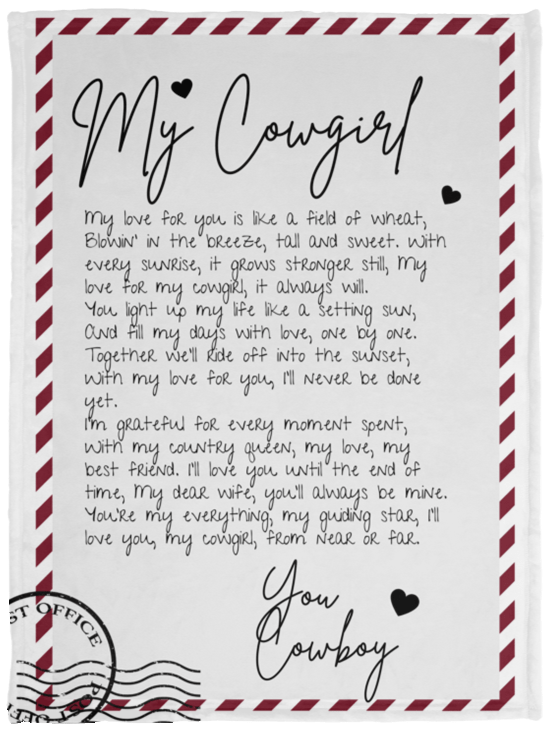 My Cowgirl
My love for you is like a field of wheat,
Blowin' in the breeze, tall and sweet. With
every sunrise, it grows stronger still, My
love for my cowgirl, it always will.
You light up my life like a setting sun,
And fill my days with love, one by one.
Together we'll ride off into the sunset,
With my love for you, I'll never be done
yet.
I'm grateful for every moment spent,
With my country queen, my love, my
best friend. I'll love you until the end of
time, My dear wife, you'll always be mine.
You're my everything, my guiding star, I'll
love you, my cowgirl, from near or far.
You
Cowboy
ST OFFICE
POST OFF